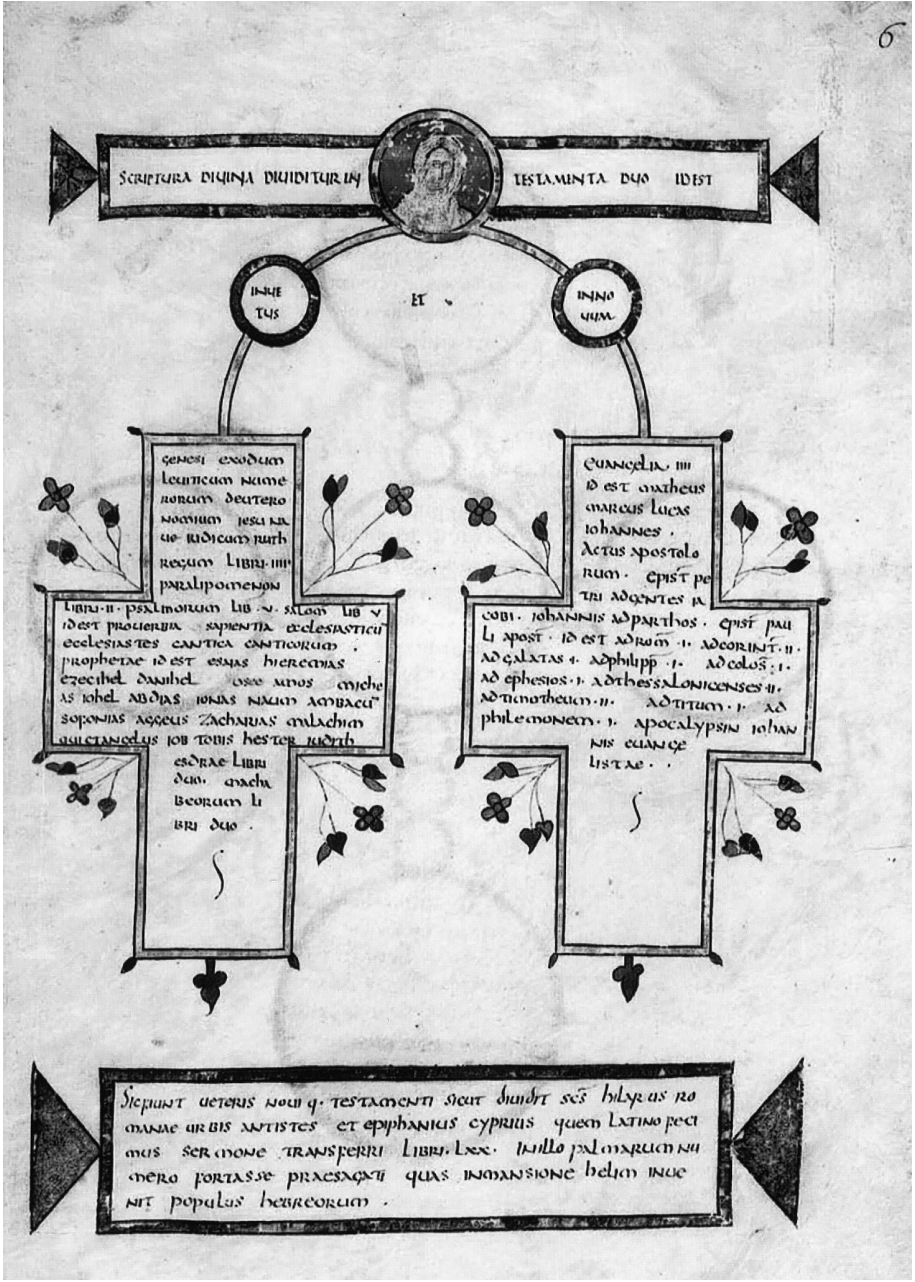 6
SCRIPTURA DIUINA DIUIDITUR IN TESTAMENTA DUO IDEST
INUE
TUS
ET
INNO
UUM
GENESI EXODUM
LEUITICUM NUME
RORUM DEUTERO
NOMIUM IESU NA
UE IUDICUM RUTH
REGUM LIBRI·IIII
PARALIPOMENON
LIBRI·II· PSALMORUM LIB·V· SALOM LIB V
IDEST PROUERBIA SAPIENTIA ECCLESIASTICU
ECCLESIASTES CANTICA CANTICORUM ·
PROPHETAE IDEST ESAIAS HIEREMIAS
EZECIHEL DANIHEL OSEE AMOS MICHE
AS IOHEL ABDIAS IONAS NAUM AMBACU
SOFONIAS AGGEUS ZACHARIAS MALACHIM
QUIETANGELUS IOB TOBIS HESTER IUDITH
ESDRAE LIBRI
DUO· MACHA
BEORUM LI
BRI DUO ·
EUANGELIA·IIII
IDEST MATHEUS
MARCUS LUCAS
IOHANNES ·
ACTUS APOSTOLO
RUM· EPIST PE
TRI ADGENTES IA
COBI· IOHANNIS ADPARTHOS· EPIST PAU
LI APOST· IDEST ADROM·I· ADCORINT·II·
ADGALATAS·I· ADPHILIPP·I· ADCOLOS·I·
AD EPHESIOS·I· ADTHESSALONICENSES·II·
ADTIMOTHEUM·II· ADTITUM·I· AD
PHILEMONEM·I· APOCALYPSIN IOHAN
NIS EUANGE
LISTAE · ·
SICFIUNT UETERIS NOUIQ· TESTAMENTI SICUT DIUIDIT SCS HILARUS RO
MANAE URBIS ANTISTES ET EPIPHANIUS CYPRIUS QUEM LATINO FECI
MUS SERMONE TRANSFERRI LIBRI·LXX· INILLO PALMARUM NU
MERO FORTASSE PRAESAGATI QUAS INMANSIONE HELIM INUE
NIT POPULUS HEBREORUM ·